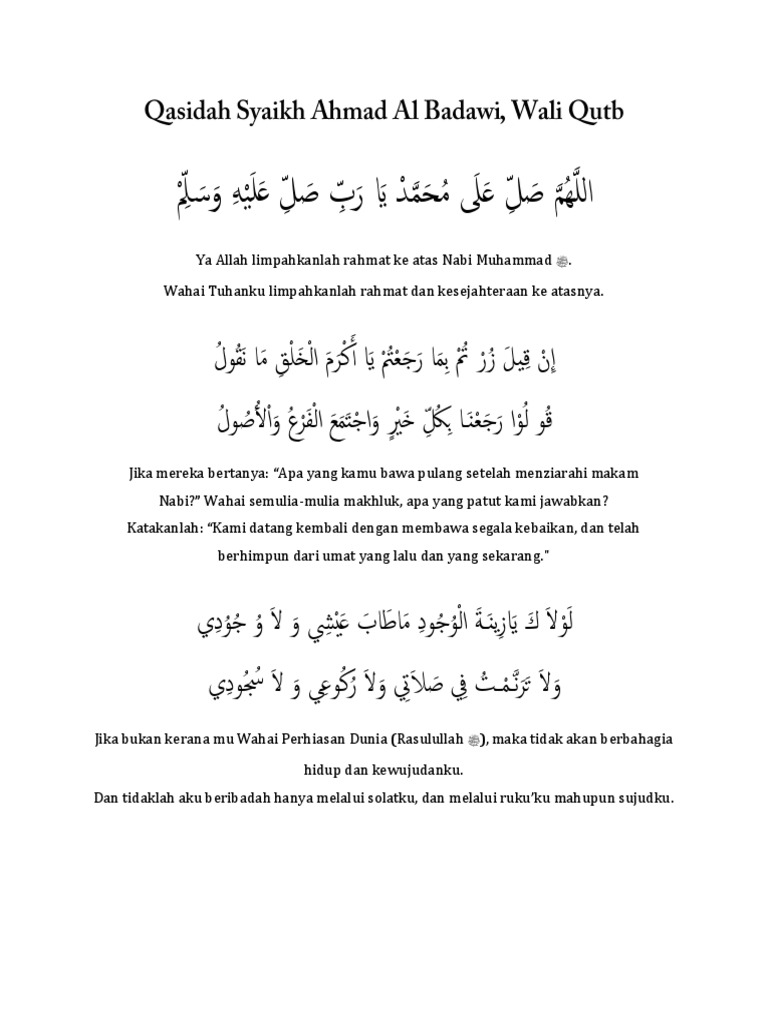 Qasidah Syaikh Ahmad Al Badawi, Wali Qutb
اللَّهُمَّ صَلِّ عَلَى مُحَمَّدْ يَا رَبِّ صَلِّ عَلَيْهِ وَسَلِّمْ
Ya Allah limpahkanlah rahmat ke atas Nabi Muhammad ﷺ.
Wahai Tuhanku limpahkanlah rahmat dan kesejahteraan ke atasnya.
إِنْ قِيلَ زُرْ تُمْ بِمَا رَجَعْتُمْ يَا أَكْرَمَ الْخَلْقِ مَا نَقُولُ
قُو لُوْا رَجَعْنَا بِكُلِّ خَيْرٍ وَاجْتَمَعَ الْفَرْعُ وَالْأُصُولُ
Jika mereka bertanya: “Apa yang kamu bawa pulang setelah menziarahi makam
Nabi?” Wahai semulia-mulia makhluk, apa yang patut kami jawabkan?
Katakanlah: “Kami datang kembali dengan membawa segala kebaikan, dan telah
berhimpun dari umat yang lalu dan yang sekarang."
لَوْلاَ كَ يَازِينَةَ الْوُجُودِ مَاطَابَ عَيْشِي وَ لاَ وُ جُوُدِي
وَلاَ تَرَنَّمْتُ فِي صَلاَتِي وَلاَ رُكُوعِي وَ لاَ سُجُودِي
Jika bukan kerana mu Wahai Perhiasan Dunia (Rasulullah ﷺ), maka tidak akan berbahagia
hidup dan kewujudanku.
Dan tidaklah aku beribadah hanya melalui solatku, dan melalui ruku’ku mahupun sujudku.